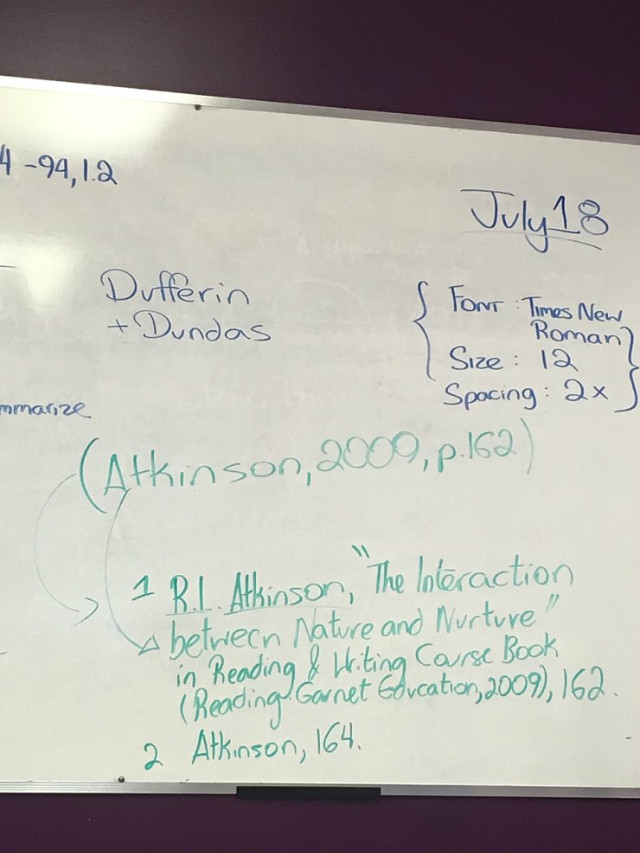 4 -94, 1.2
July 18
Dufferin
+ Dundas
Font : Times New
Roman
Size : 12
Spacing : 2x
mmarize
(Atkinson, 2009, p.162)
1 R.L. Atkinson, "The Interaction
between Nature and Nurture"
in Reading & Writing Course Book
(Reading: Garnet Education, 2009), 162.
2 Atkinson, 164.